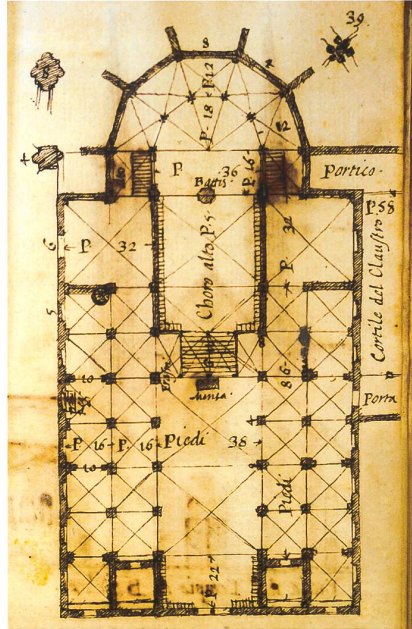 39
8
P. 12
P. 18
12
4
P. 16
P.
36
Battis.
Portico.
P. 58
6
P.
32
32
P
Choro alto P. 5
Cortile del Claustro
5
86
Mensa
10
Porta
P. 16
P. 16
Piedi
38
10
Piedi
P. 22